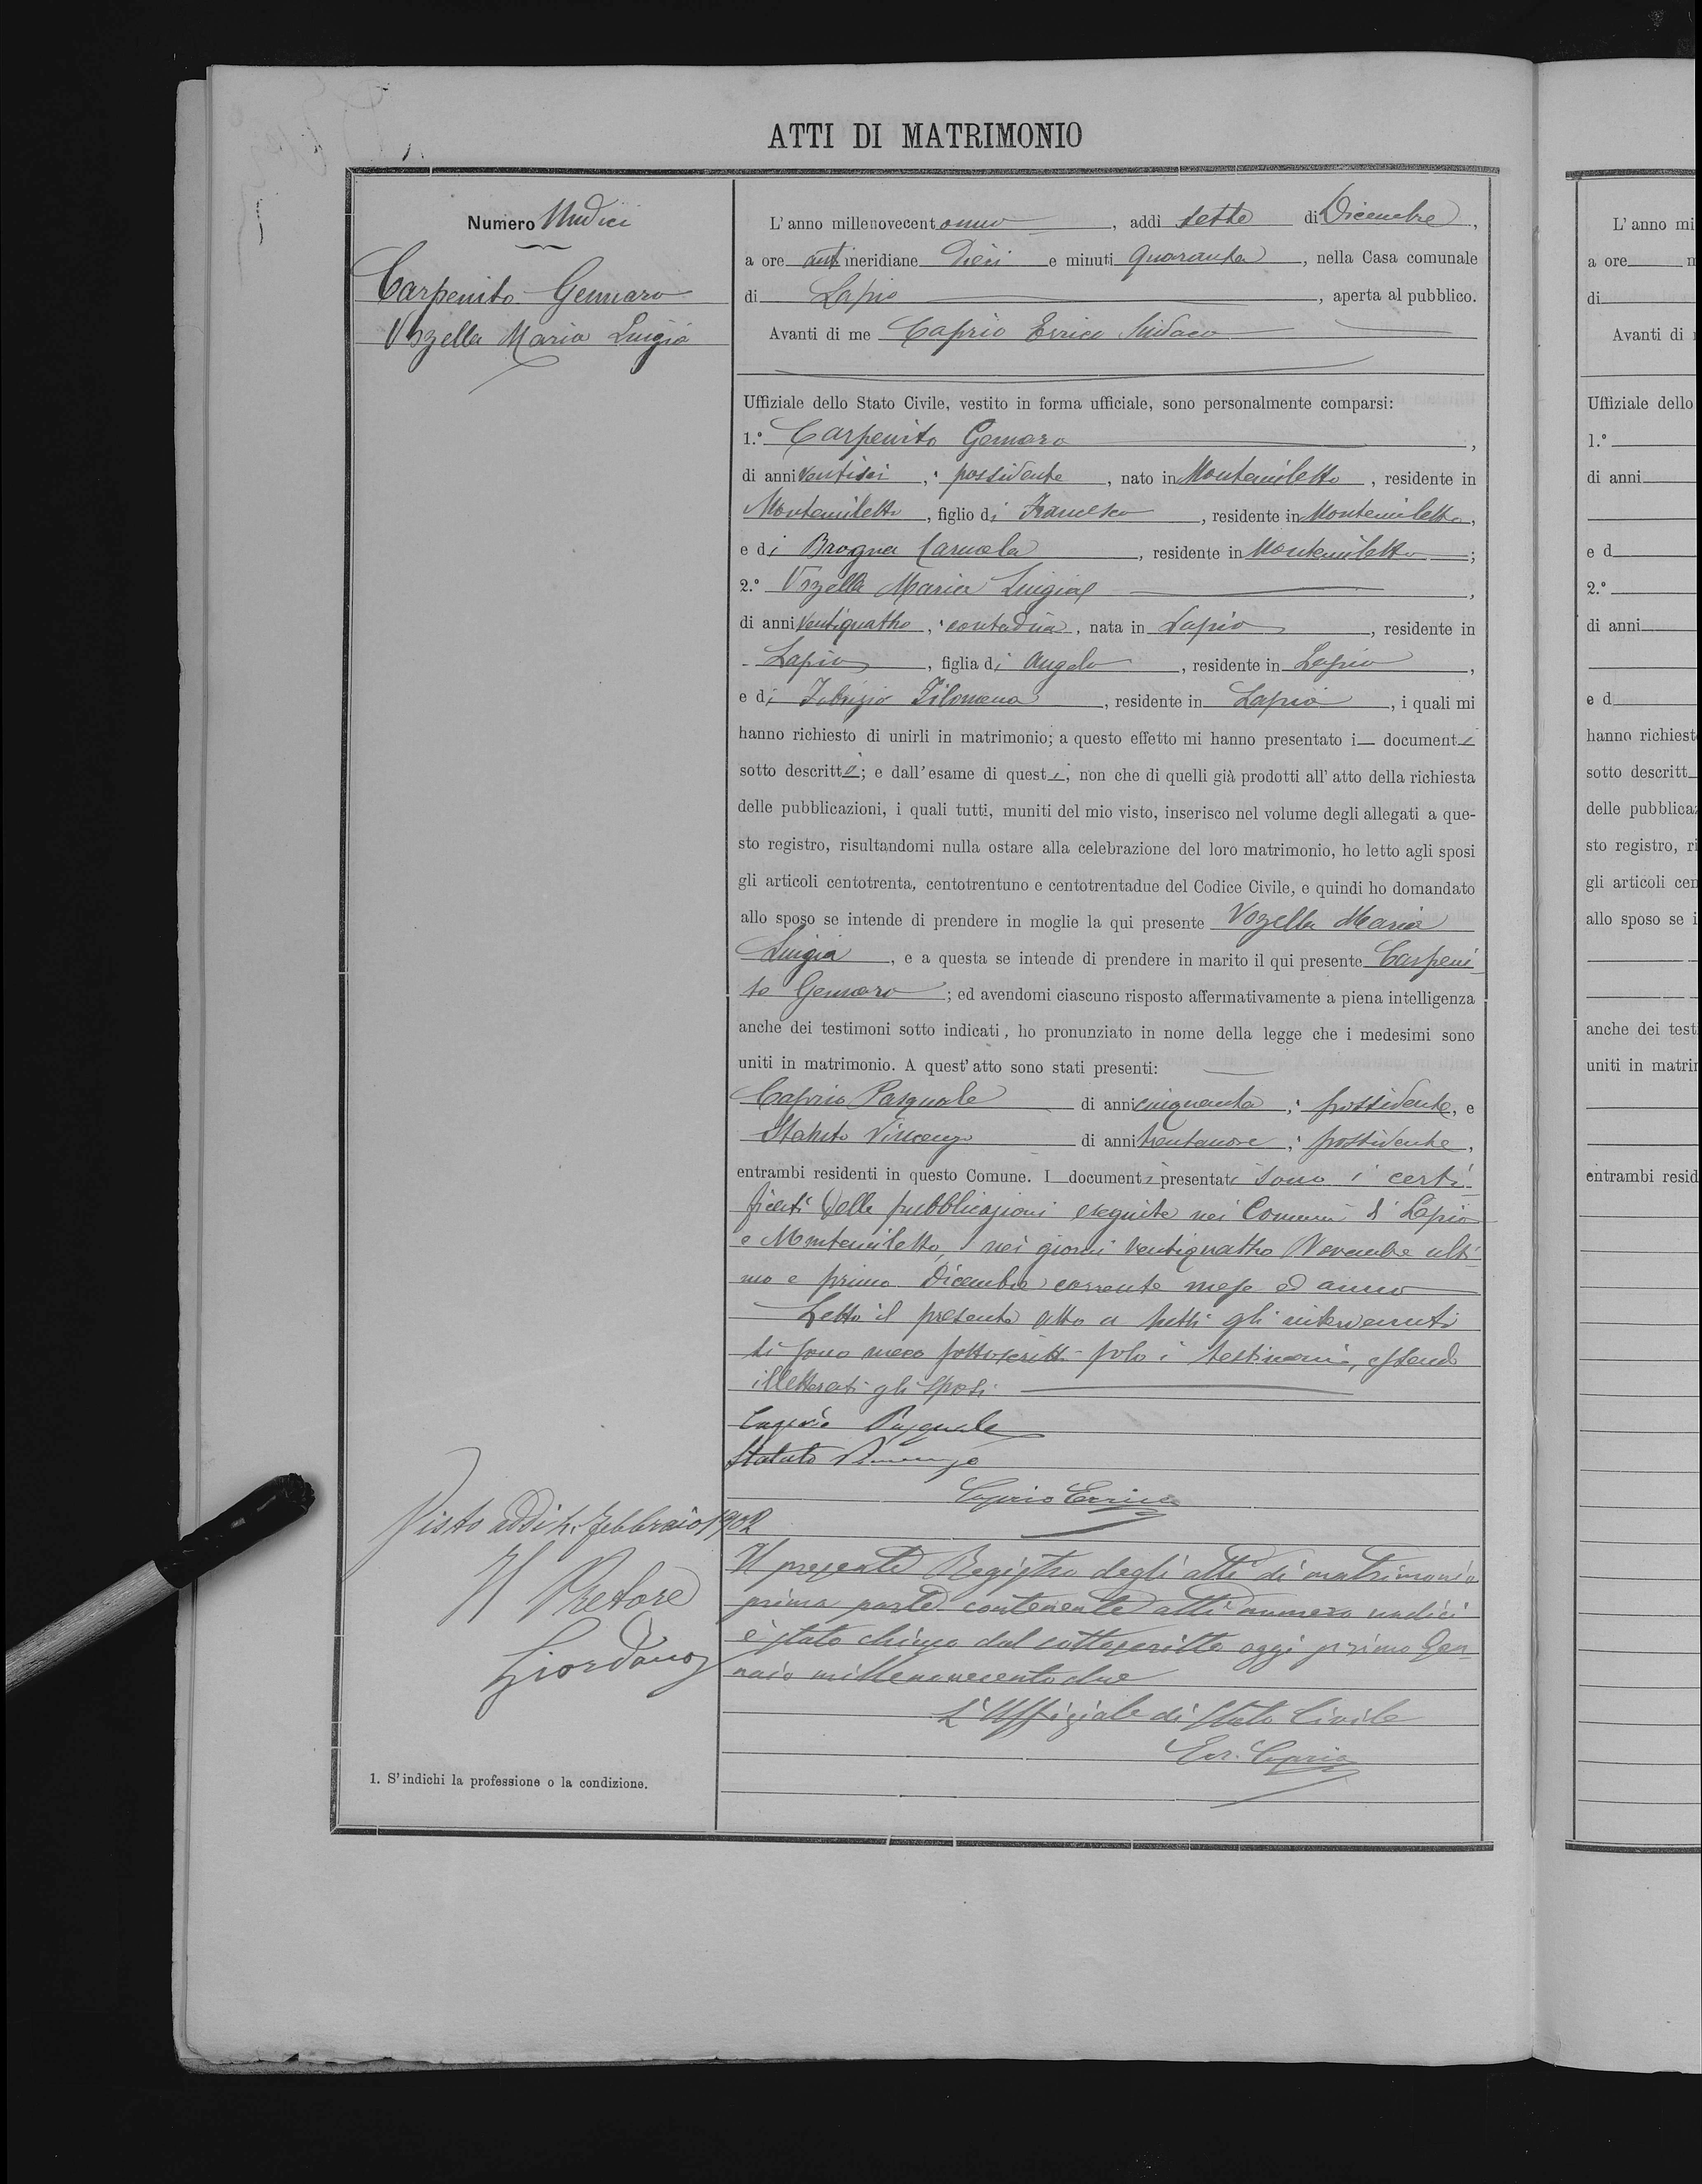 ATTI DI MATRIMONIO
Numero Undici
Carpenito Gennaro
Vozzella Maria Luigia
L'anno millenovecentouno, addì sette di Dicembre,
a ore antimeridiane dieci e minuti quaranta, nella Casa comunale
di Lapio, aperta al pubblico.
Avanti di me Caprio Errico Sindaco
Uffiziale dello Stato Civile, vestito in forma ufficiale, sono personalmente comparsi:
1.° Carpenito Gennaro,
di anni ventisei, possidente, nato in Montemiletto, residente in
Montemiletto, figlio di Francesco, residente in Montemiletto,
e di Brogna Carmela, residente in Montemiletto;
2.° Vozella Maria Luigia,
di anni ventiquattro, contadina, nata in Lapio, residente in
Lapio, figlia di Angelo, residente in Lapio,
e di Filomena, residente in Lapio, i quali mi
hanno richiesto di unirli in matrimonio; a questo effetto mi hanno presentato i documenti
sotto descritti; e dall'esame di questi, non che di quelli già prodotti all'atto della richiesta
delle pubblicazioni, i quali tutti, muniti del mio visto, inserisco nel volume degli allegati a que-
sto registro, risultandomi nulla ostare alla celebrazione del loro matrimonio, ho letto agli sposi
gli articoli centotrenta, centotrentuno e centotrentadue del Codice Civile, e quindi ho domandato
allo sposo se intende di prendere in moglie la qui presente Vozella Maria
Luigia, e a questa se intende di prendere in marito il qui presente Carpeni
to Gennaro; ed avendomi ciascuno risposto affermativamente a piena intelligenza
anche dei testimoni sotto indicati, ho pronunziato in nome della legge che i medesimi sono
uniti in matrimonio. A quest'atto sono stati presenti:
Caprio Pasquale di anni cinquanta, possidente, e
Statuto Vincenzo di anni trentanove, possidente,
entrambi residenti in questo Comune. I documenti presentati sono i certi-
ficati delle pubblicazioni eseguite nei Comuni di Lapio
e Montemiletto, nei giorni ventiquattro Novembre ulti-
mo e primo Dicembre corrente mese ed anno
Letto il presente atto a tutti gli intervenuti
si sono meco sottoscritti solo i testimoni, essendo
illetterati gli sposi
Caprio Pasquale
Statuto Vincenzo
Caprio Errico
Il presente Registro degli atti di matrimonio
prima parte contenente atti numero undici
è stato chiuso dal sottoscritto oggi primo Gen-
naio millenovecentodue
L'Uffiziale di Stato Civile
Err. Caprio
Visto addì Febbraio 1902
Il Pretore
Giordano
1. S'indichi la professione o la condizione.
L'anno mi
a ore
di
Avanti di
Uffiziale dello
1.°
di anni
e d
2.°
di anni
e d
hanno richiest
sotto descritt
delle pubblica
sto registro, ri
gli articoli cen
allo sposo se i
anche dei test
uniti in matri
entrambi resid